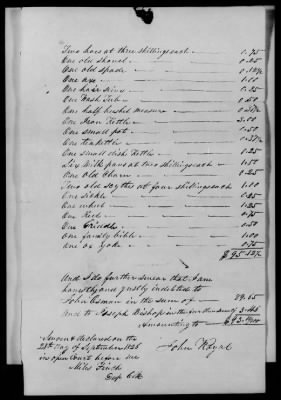 Two hoes at three shillings each — 0.75
One old shovel — 0.25
One old spade — 0.12½
One axe — 1.00
One hair sieve — 0.25
One Wash Tub — 0.50
One half bushel measure — 0.37½
One Iron Kettle — 3.00
One small pot — 1.50
One teakettle — 1.37½
One small dish Kettle — 1.25
Six Milk pans at two shillings each — 1.50
One Old Churn — 0.25
Two old Scythes at four shillings each — 1.00
One Sickle — 0.25
One wheel — 1.25
One Reel — 0.75
One Griddle — 0.50
One family bible — 1.00
one ox Yoke — 0.75
$95.12½
And I do further swear that I am
honestly and justly indebted to
John Osman in the sum of — 89.65
and to Joseph Bishop in the sum of 3.45
Amounting to — $93.10
Sworn & declared on the
28th Day of September 1826
in open Court before me
Miles Finch
Dep Clk
John